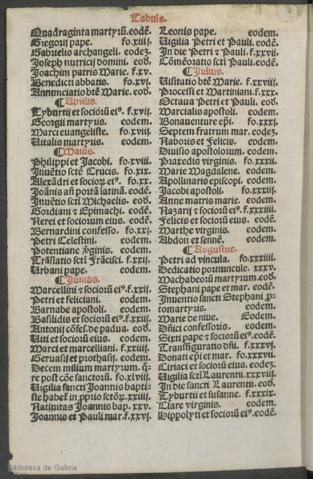 Tabula.
Quadraginta martyrũ. eodẽ.
Gregorij pape. fo.xiiij.
Gabrielis archangeli. eodez.
Joseph nutricij domini. eod.
Joachim patris Marie. f.xv.
Benedicti abbatis. fo.xvj.
Annunciatio btẽ Marie. eod.
¶Aprilis.
Tyburtij et socioru eiꝰ. f.xvij.
Georgij martyris. eodem.
Marci euangeliste. fo.xviij.
Uitalis martyris. eodem.
¶Maius.
Philippi et Jacobi. fo.xviij.
Inuẽtio sctẽ Crucis. f.xix.
Alexãdri et socioꝝ eiꝰ. f.xx.
Joãnis añ portã latinã. eodẽ.
Inuẽtio scti Michaelis. eod.
Gordiani ⁊ Epimachi. eodẽ.
Nerei et sociorum eius. eodẽ.
Bernardini confesso. fo.xxj.
Petri Celestini. eodem.
Potentiane vginis. eodem.
Trãslatio scti Frãcisci. f.xxij.
Urbani pape. eodem.
¶Junius.
Marcellini ⁊ socioꝝ eiꝰ f.xxij.
Petri et feliciani. eodem.
Barnabe apostoli. eodem.
Basilidis et socioꝝ eiꝰ f.xxiij.
Antonij cõfes. de padua. eod.
Uiti et sociorũ eius. eodem.
Marci et marcelliani. f.xxiiij.
Geruasij et prothasij. eodem.
Decem milium martyrum. q̃-
re post cõe sanctorũ. fo.xlviij.
Uigilia sancti Joannis bapti-
ste habeẽ in pprio sctoꝝ. xxiiij.
Natiuitas Joannis bap. xxv.
Joannis et Pauli mar. f.xxvj.
Leonis pape. eodem.
Uigilia Petri et Pauli. eodẽ.
In die Petri ⁊ Pauli. f.xxvij.
Cõmẽoratio scti Pauli. eodẽ.
¶Julius.
Uisitatio btẽ Marie. f.xxviij.
Processi et Martiniani. f.xxx.
Octaua Petri et Pauli. eod.
Marcialis apostoli. eodem.
Bonauenture epi. fo.xxxj.
Septem fratrum mar. eodez.
Naboris et Felicis. eodem.
Diuisio apostolorum. eodem.
Praxedis virginis. fo.xxxij.
Marie Magdalene. eodem.
Apollinaris episcopi. eodem.
Jacobi apostoli. fo.xxxiij.
Anne matris marie. eodem.
Nazarij ⁊ socioꝝ eiꝰ. f.xxxiiij.
Felicis et sociorũ eius. eodẽ.
Marthe virginis. eodem.
Abdon et sennẽ. eodem.
¶Augustus.
Petri ad vincula. fo.xxxiiij.
Dedicatio portiuncule. xxxv.
Machabeorũ martyrum. eod.
Stephani pape et mar. eodẽ.
Inuentio sancti Stephani p-
tomartyris. eodem.
Marie de niue. Eodem.
Dñici confessoris. eodem.
Sixti pape ⁊ socioꝝ eiꝰ. eodẽ.
Transfiguratio dñi. f.xxxvj.
Donati epi et mar. fo.xxxvij.
Ciriaci et sociorũ eius. eodez.
Uigilia scti Laurentij. xxxviij.
In die sancti Laurentij. eod.
Tyburtij et susanne. f.xxxix.
Clare virginis. eodem.
Hippolyti et socioru eiꝰ. eodẽ.
Biblioteca de Galicia